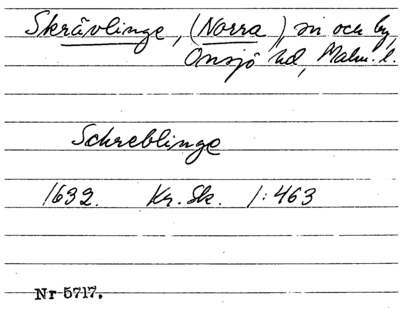 Skrävlinge, (Norra) sn och by,
Onsjö hd, Malm. l.
Schreblinge
1632. Kr. Sk. 1:463
Nr 5717.